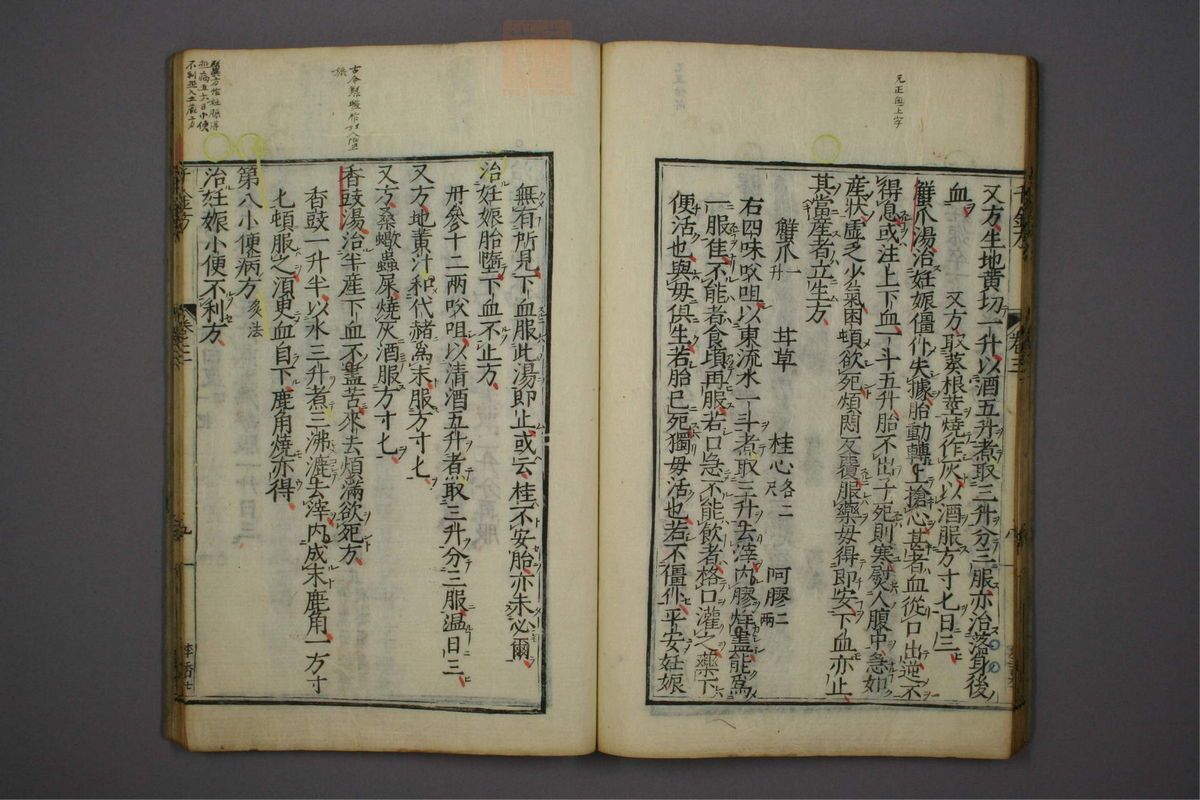 元正血上字
又方生地黃切一升以酒五升煮取三升分三服亦治落身後
血 又方取葵根莖燒作灰以酒服方寸匕日三
蟹爪湯治妊娠僵仆失據胎動轉上搶心甚者血從口出逆不
得息或注上下血一斗五升胎不出子死則寒熨人腹中急如
產狀虛乏少氣困頓欲死煩悶反覆服藥母得即安下血亦止
其當產者立生方
蟹爪一升 甘草 桂心各二尺 阿膠二兩
右四味㕮咀以東流水一斗煮取三升去滓內膠烊盡能爲
一服佳不能者食頃再服若口急不能飲者格口灌之藥下
便活也與母俱生若胎已死獨母活也若不僵仆平安妊娠
千金方 卷三
無有所見下血服此湯即止或云桂不安胎亦未必爾
治妊娠胎墮下血不止方
丹參十二兩㕮咀以清酒五升煮取三升分三服温日三
又方地黃汁和代赭爲末服方寸匕
又方桑蠍蟲屎燒灰酒服方寸匕
香豉湯治半產下血不盡苦來去煩滿欲死方
香豉一升半以水三升煮三沸漉去滓內成末鹿角一方寸
匕頓服之湏臾血自下鹿角燒亦得
第八小便病方
治妊娠小便不利方
千金方